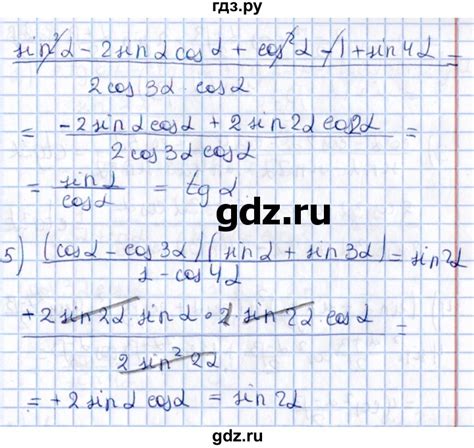 гдз.ру
sin²α - 2 sin α cos α + cos²α - 1 + sin 4α =
2 cos 3α · cos α
= -2 sin α cos α + 2 sin 2α cos 2α =
2 cos 3α cos α
= sin α / cos α = tg α.
gdz.ru
5) (cos α - cos 3α)(sin α + sin 3α) = sin 2α
1 - cos 4α
+ 2 sin 2α · sin α · 2 sin 2α · cos α =
2 sin² 2α
= + 2 sin α cos α = sin 2α
gdz.ru